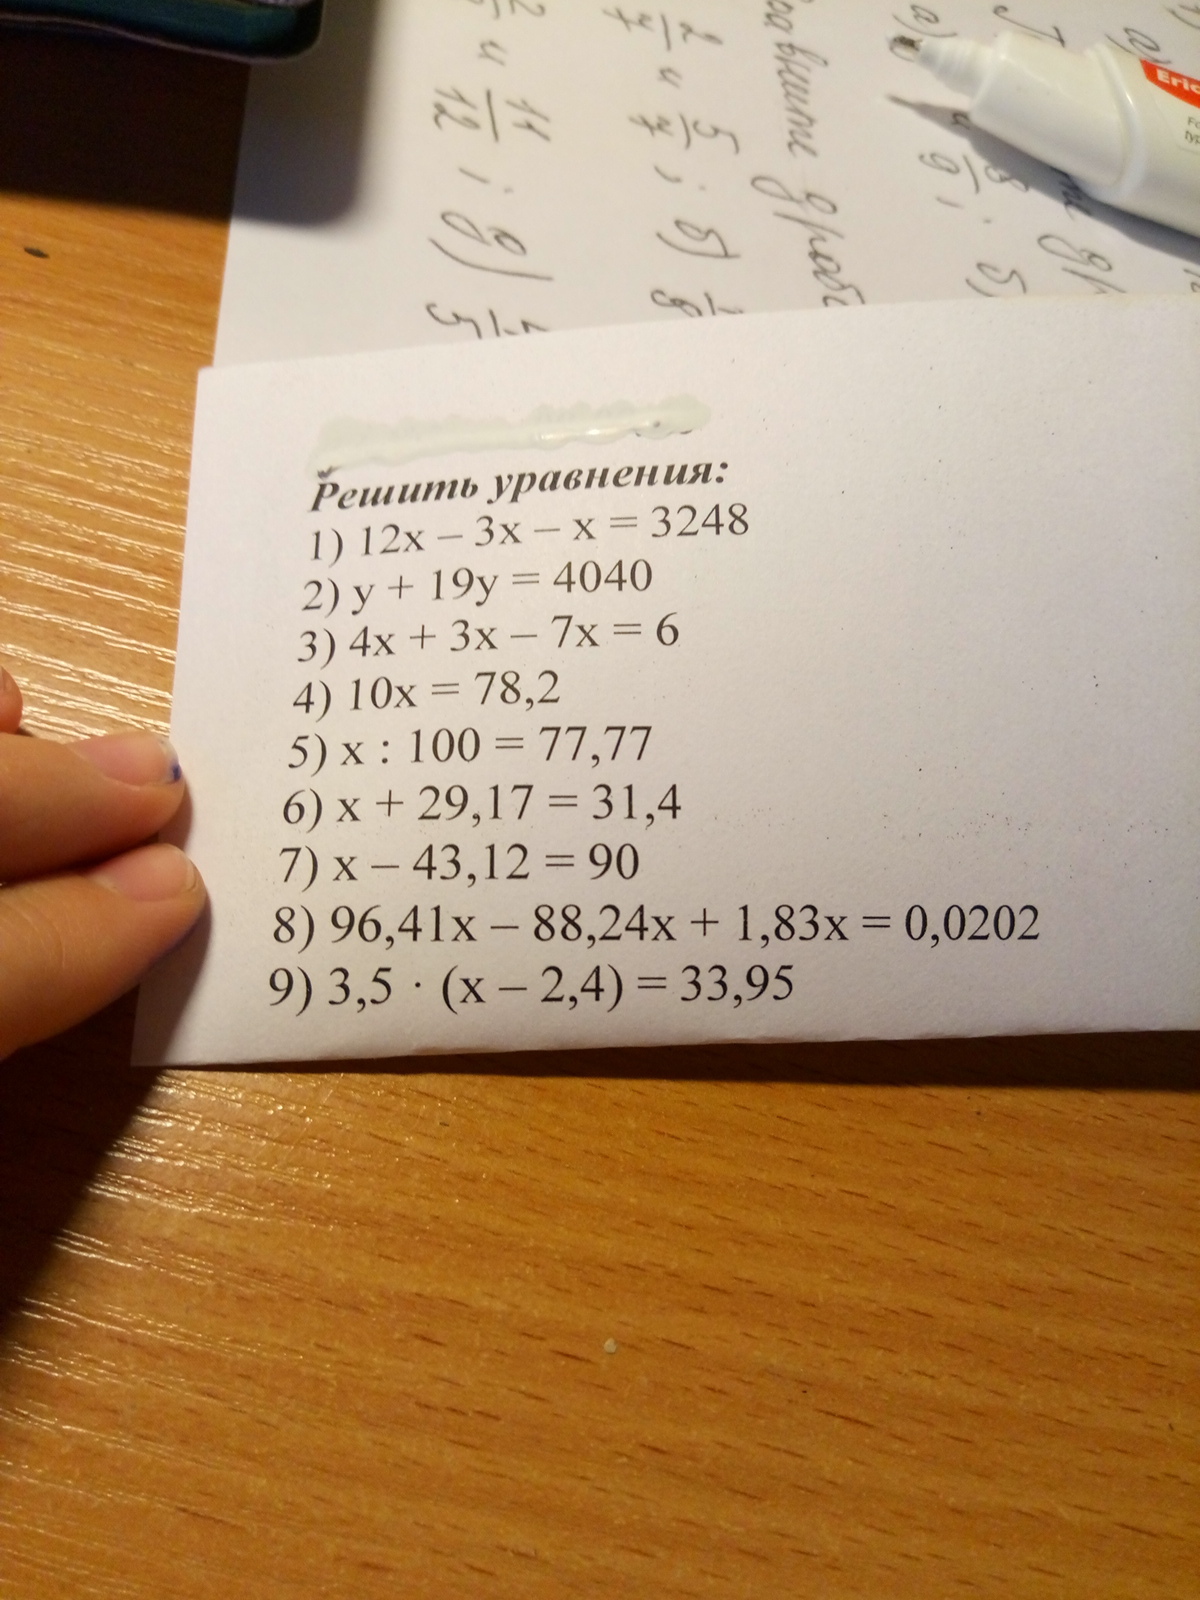 Решить уравнения:
1) 12x – 3x – x = 3248
2) y + 19y = 4040
3) 4x + 3x – 7x = 6
4) 10x = 78,2
5) x : 100 = 77,77
6) x + 29,17 = 31,4
7) x – 43,12 = 90
8) 96,41x – 88,24x + 1,83x = 0,0202
9) 3,5 · (x – 2,4) = 33,95
а)
и 8/9; б)
2/7 и 5/7; б)
и 11/12; д)